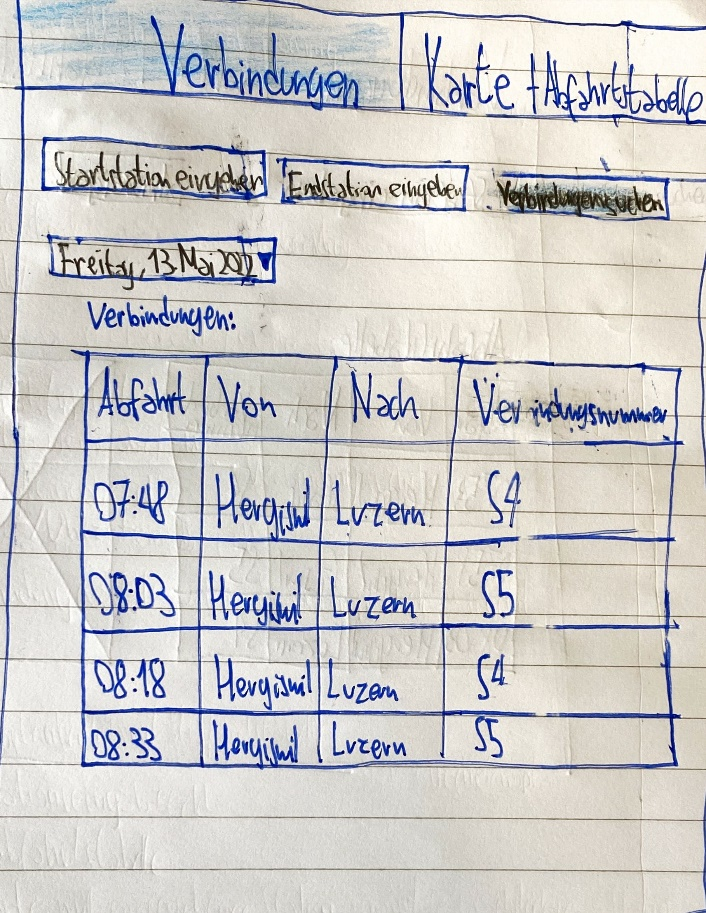 Verbindungen Karte + Abfahrtstabelle
Startstation eingeben Endstation eingeben Verbindungen suchen
Freitag, 13. Mai 2022
Verbindungen:
Abfahrt Von Nach
07:48 Hergiswil Luzern S4
08:03 Hergiswil Luzern S5
08:18 Hergiswil Luzern S4
08:33 Hergiswil Luzern S5